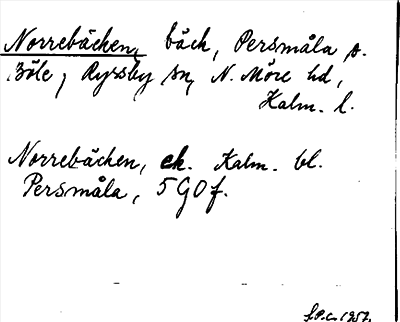 Norrebäcken, bäck, Persmåla o.
Böle, Ryssby sn, N. Möre hd,
Kalm. l.
Norrebäcken, ek. Kalm. bl.
Persmåla, 5 G O f.